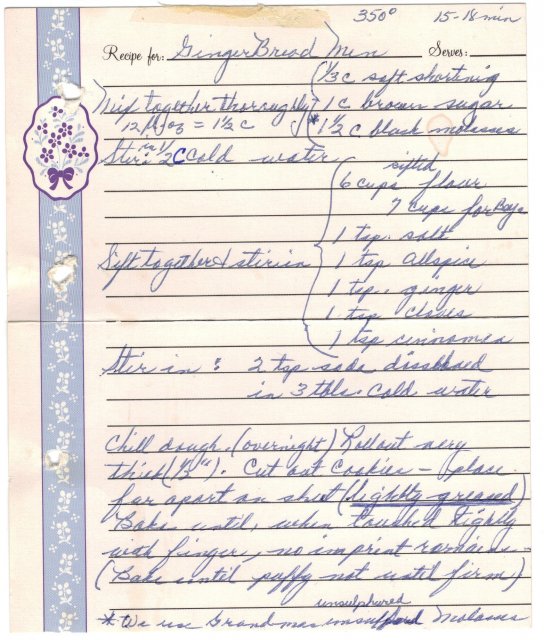 350° 15-18 min
Recipe for: GingerBread Men Serves:
1/3 c soft shorting
Mix together thoroughly 1 c brown sugar
12 fl oz = 1 1/2 c * 1 1/2 c black molasses
Stir in 1/2 C cold water
sifted
6 cups flour
7 cups for Boys
1 tsp. salt
Sift together & stir in 1 tsp Allspice
1 tsp. ginger
1 tsp cloves
1 tsp cinnomen
Stir in : 2 tsp soda dissolved
in 3 tbls. cold water
Chill dough. (overnight) Roll out very
thick (1/2"). Cut out cookies - place
far apart on sheet (lightly greased)
Bake until, when touched lightly
with finger, no imprint remains -
(Bake until puffy not until firm.)
unsulphured
* We use Grandmas Molasses